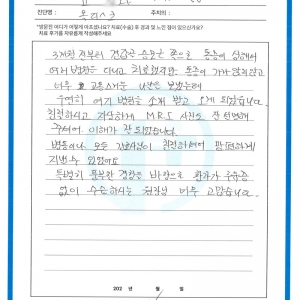 진단명 : 목디스크 주치의 :
"방문전 어디가 어떻게 아프셨나요? 치료(수술) 후 경과 및 느낀 점이 있으신가요?
치료 후기를 자유롭게 작성해주세요
3개월 전부터 손을 쪽으로 통증이 심해서
여러 병원을 다니고 치료했지만 통증이 가시질않고
너무 고통스러운 나날을 보냈는데
우연히 이 병원을 소개 받고 오게 되었습니다.
친절하시고 자상하게 M.R.I 사진도 잘 설명해
주셔서 이해가 잘 되었습니다.
병동에서 모든 간호사님이 친절하셔서 편하게
지낼 수 있었어요
특별히 풍부한 경험을 바탕으로 환자가
없이 수술하시는 원장님 너무 고맙습니다.
202 년 월 일